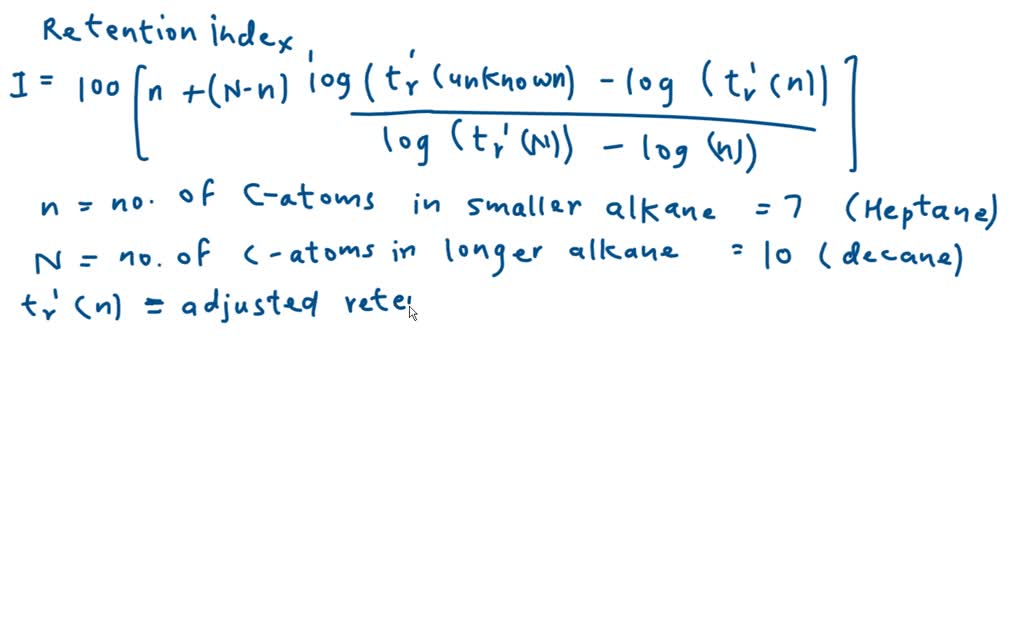 Retention index
I = 100 [n + (N-n) log (tr' (unknown) - log (tr' (n)) / log (tr' (N)) - log (n))]
n = no. of C-atoms in smaller alkane = 7 (Heptane)
N = no. of C-atoms in longer alkane = 10 (decane)
tr' (n) = adjusted rete